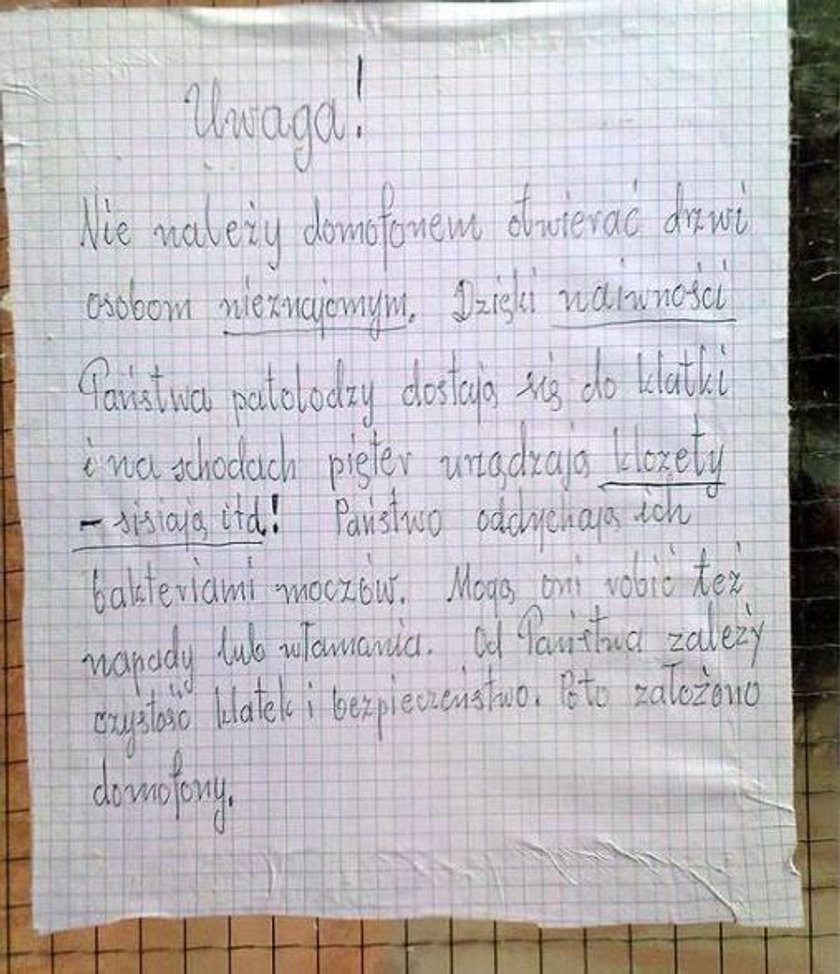 Uwaga!
Nie należy domofonem otwierać drzwi
osobom nieznajomym. Dzięki naiwności
Państwa patolodzy dostają się do klatki
i na schodach pięter urządzają klozety
- sisiają itd! Państwo oddychają ich
bakteriami moczów. Mogą oni robić też
napady lub włamania. Od Państwa zależy
czystość klatek i bezpieczeństwo. Po to założono
domofony.